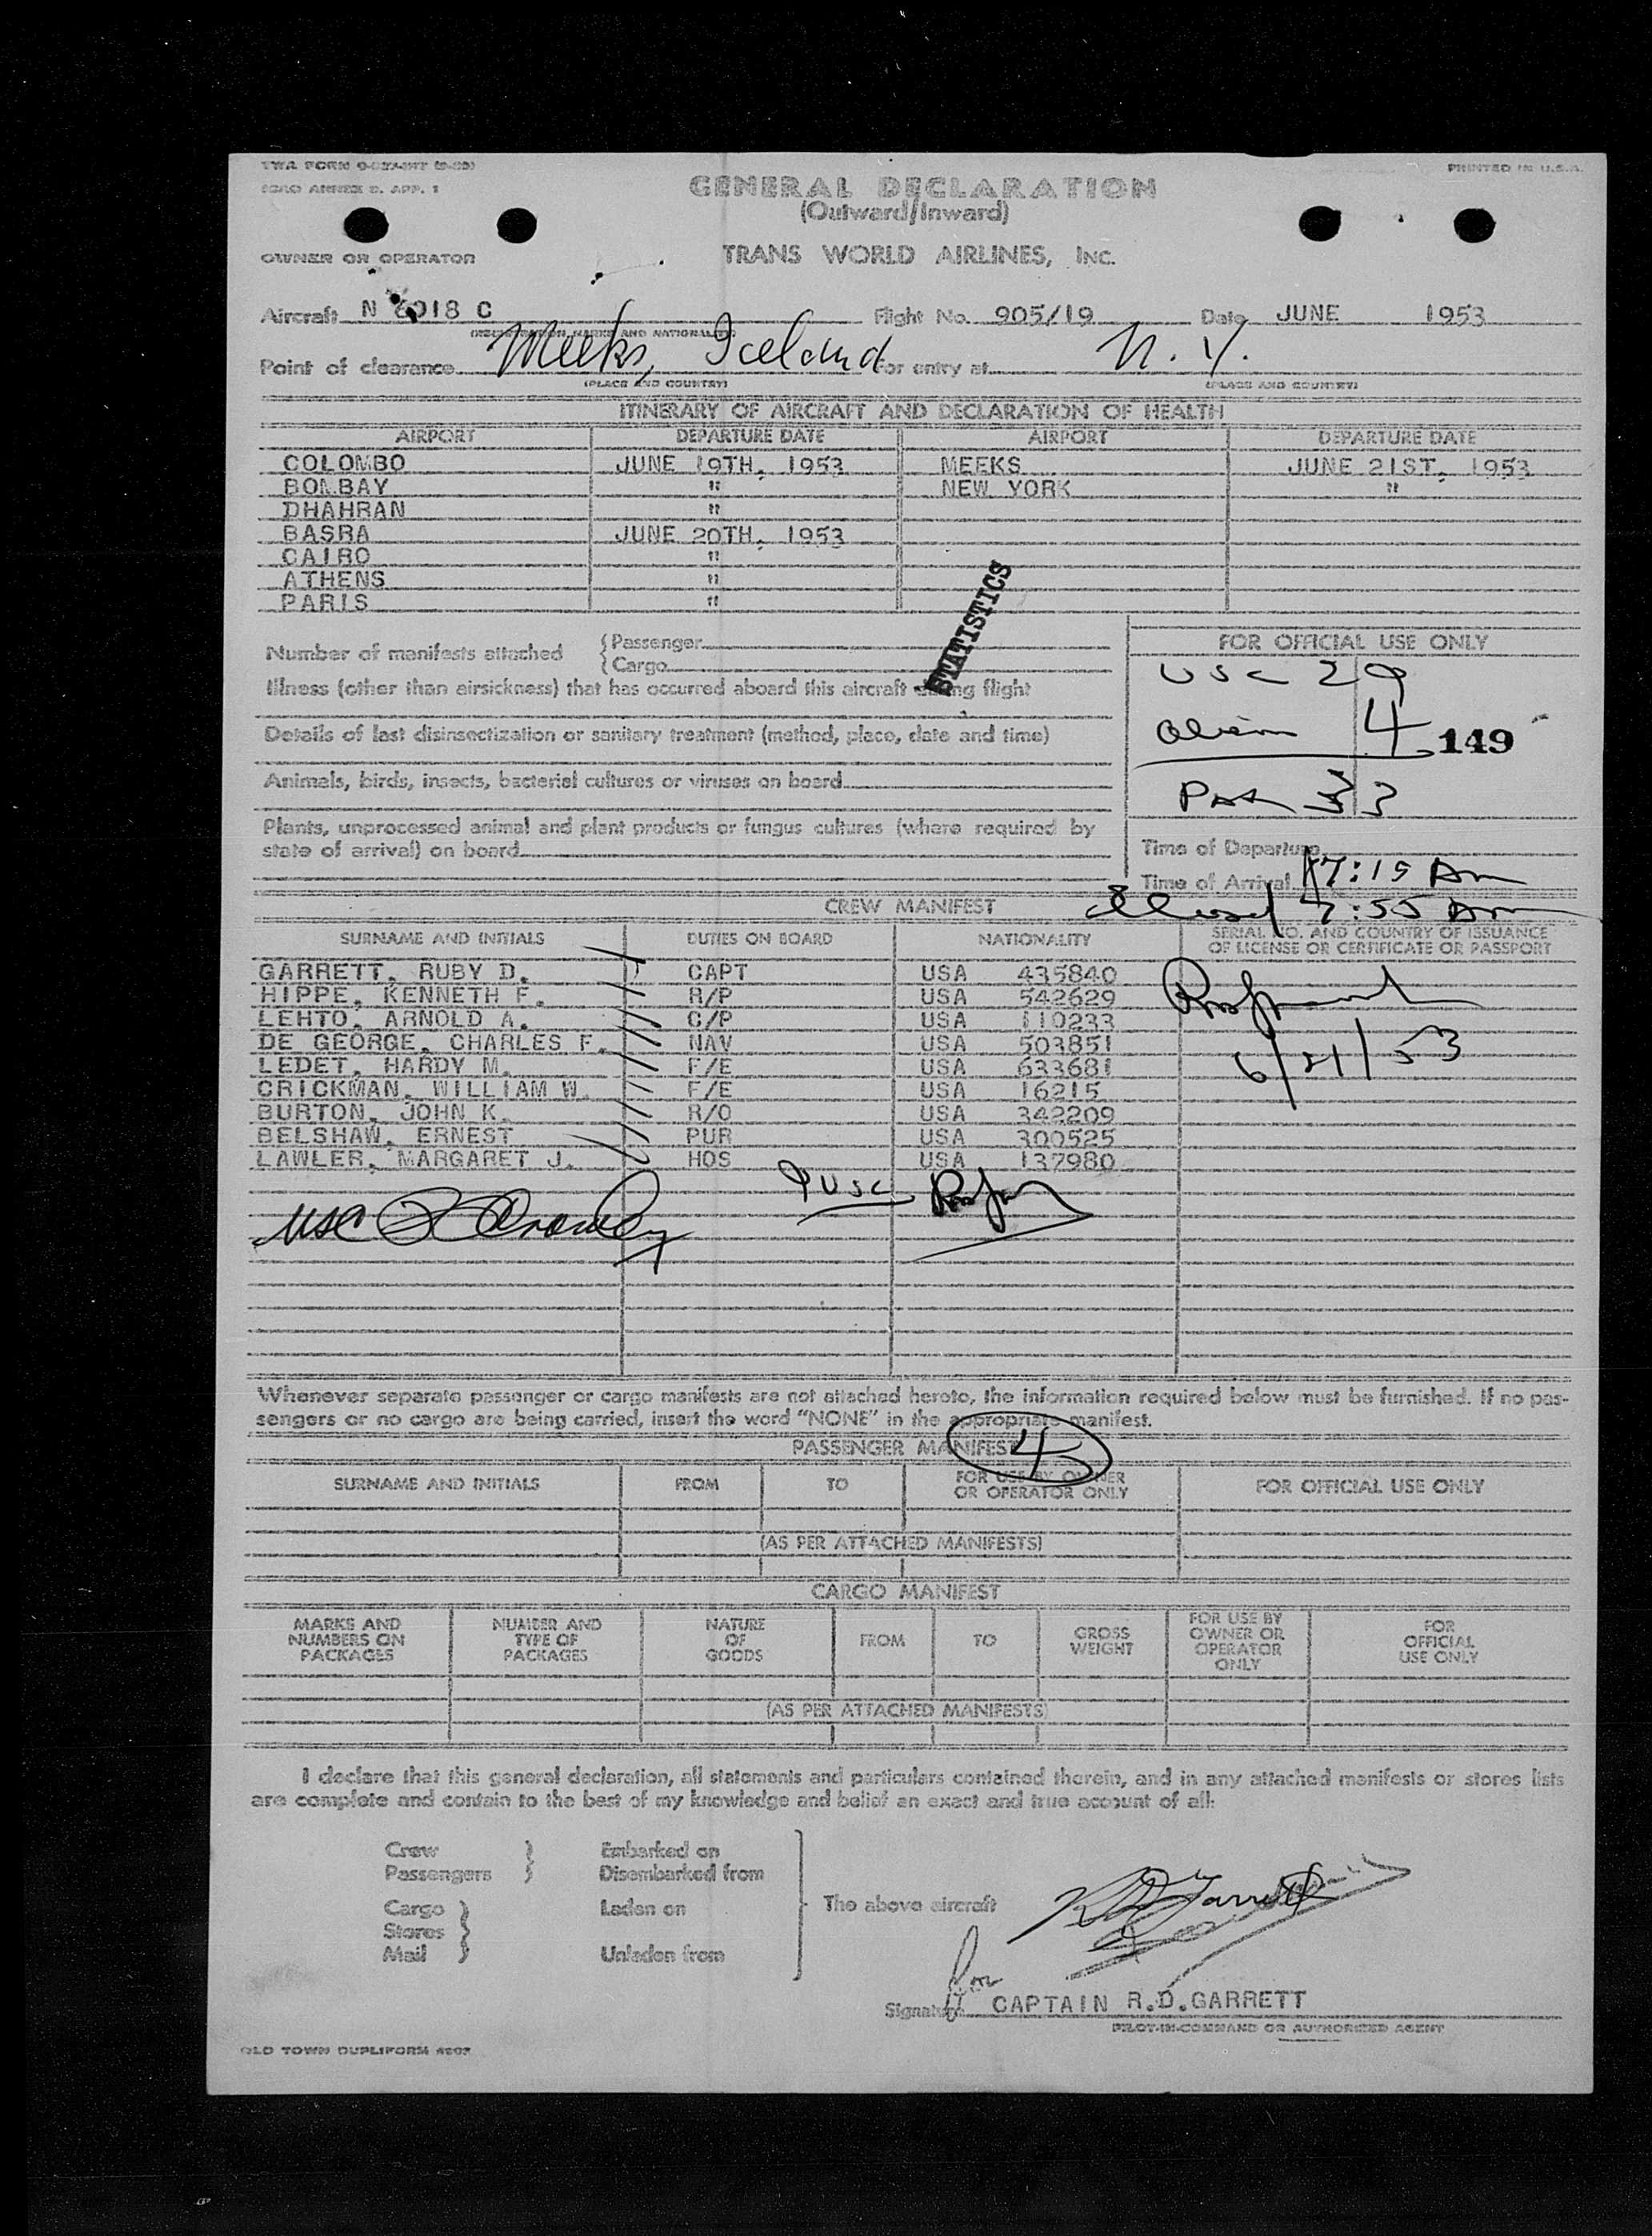 PRINTED IN U.S.A.
ICAO ANNEX 9, APP. 1
GENERAL DECLARATION
(Outward/Inward)
OWNER OR OPERATOR TRANS WORLD AIRLINES, INC.
Aircraft N 6018 C Flight No. 905/19 Date JUNE 1953
(REGISTRATION MARKS AND NATIONALITY)
Point of clearance Meeks, Iceland For entry at N.Y.
(PLACE AND COUNTRY) (PLACE AND COUNTRY)
ITINERARY OF AIRCRAFT AND DECLARATION OF HEALTH
AIRPORT DEPARTURE DATE AIRPORT DEPARTURE DATE
COLOMBO JUNE 19TH, 1953 MEEKS JUNE 21ST, 1953
BOMBAY " NEW YORK "
DHAHRAN "
BASRA JUNE 20TH, 1953
CAIRO "
ATHENS "
PARIS "
STATISTICS
Number of manifests attached { Passenger
{ Cargo
Illness (other than airsickness) that has occurred aboard this aircraft during flight
Details of last disinsectization or sanitary treatment (method, place, date and time)
Animals, birds, insects, bacterial cultures or viruses on board
Plants, unprocessed animal and plant products or fungus cultures (where required by
state of arrival) on board
FOR OFFICIAL USE ONLY
USC 29
Alien 4 149
Pas 33
Time of Departure
Time of Arrival 7:15 Am
7:55 Am
CREW MANIFEST
SURNAME AND INITIALS DUTIES ON BOARD NATIONALITY SERIAL NO. AND COUNTRY OF ISSUANCE
OF LICENSE OR CERTIFICATE OR PASSPORT
GARRETT, RUBY D. CAPT USA 435840
HIPPE, KENNETH F. R/P USA 542629
LEHTO, ARNOLD A. C/P USA 110233
DE GEORGE, CHARLES F. NAV USA 503851
LEDET, HARDY M. F/E USA 633681
CRICKMAN, WILLIAM W. F/E USA 16215
BURTON, JOHN K. R/O USA 342209
BELSHAW, ERNEST PUR USA 300525
LAWLER, MARGARET J. HOS USA 137980
6/21/53
9 USC
USC
Whenever separate passenger or cargo manifests are not attached hereto, the information required below must be furnished. If no pas-
sengers or no cargo are being carried, insert the word "NONE" in the appropriate manifest.
PASSENGER MANIFEST
SURNAME AND INITIALS FROM TO FOR USE BY OWNER
OR OPERATOR ONLY FOR OFFICIAL USE ONLY
(AS PER ATTACHED MANIFESTS)
CARGO MANIFEST
MARKS AND
NUMBERS ON
PACKAGES
NUMBER AND
TYPE OF
PACKAGES
NATURE
OF
GOODS
FROM
TO
GROSS
WEIGHT
FOR USE BY
OWNER OR
OPERATOR
ONLY
FOR
OFFICIAL
USE ONLY
(AS PER ATTACHED MANIFESTS)
I declare that this general declaration, all statements and particulars contained therein, and in any attached manifests or stores lists
are complete and contain to the best of my knowledge and belief an exact and true account of all:
Crew } Embarked on
Passengers } Disembarked from
Cargo } Laden on
Stores }
Mail } Unladen from
The above aircraft
R D Garrett
for
Signature CAPTAIN R.D.GARRETT
PILOT-IN-COMMAND OR AUTHORIZED AGENT
OLD TOWN DUPLIFORM